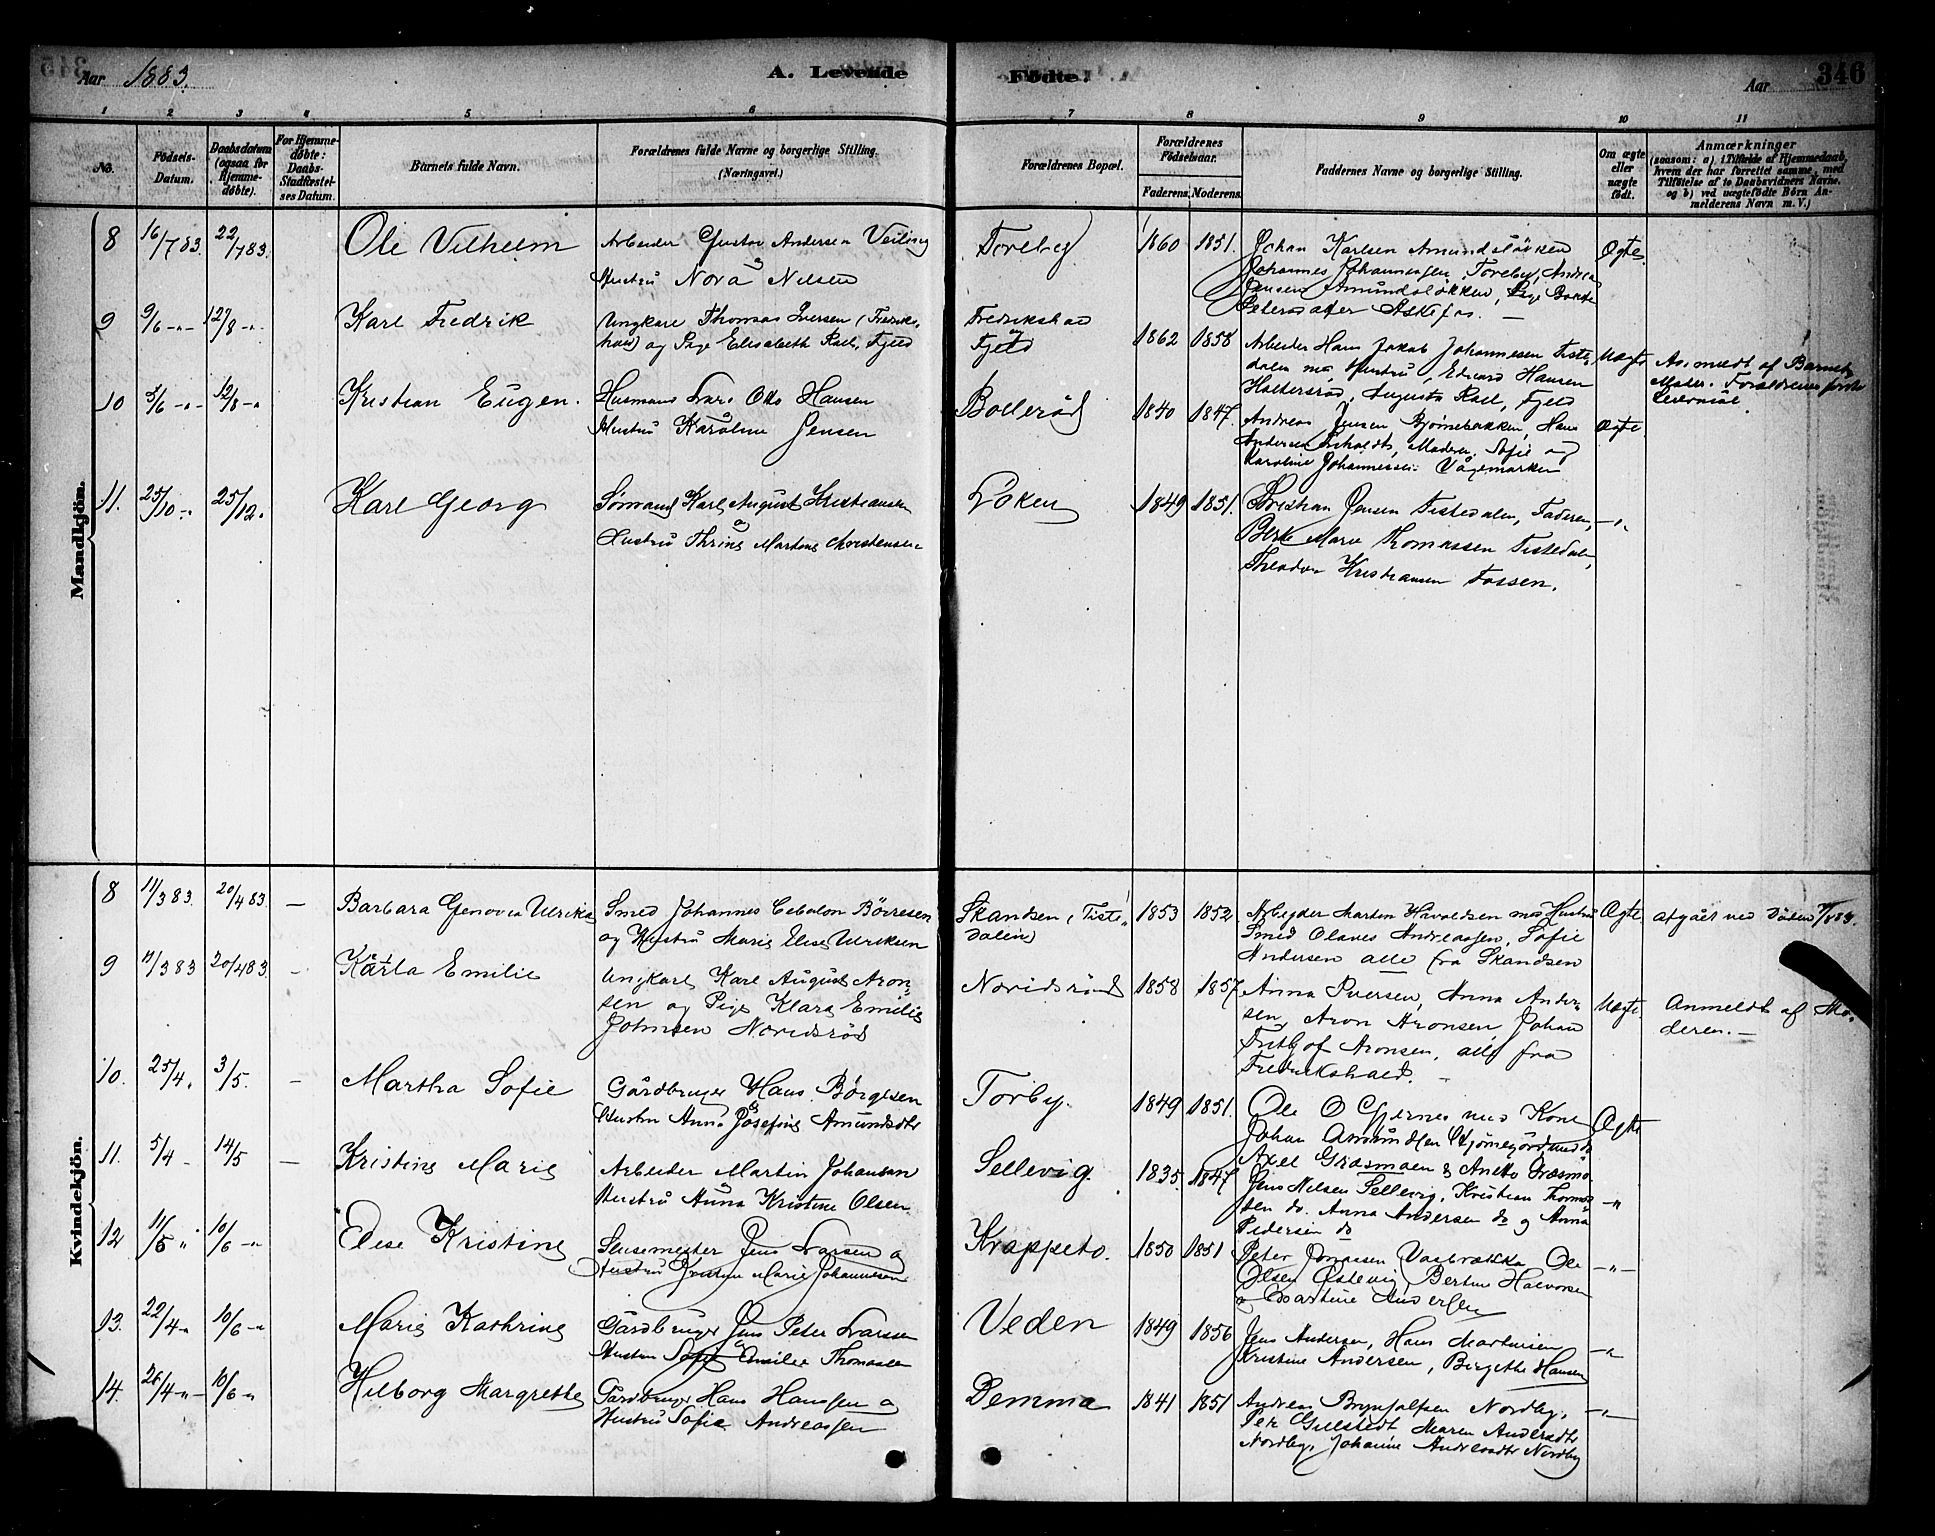 Aar 1883.
A. Levende
Fødte.
Aar
346
1 2 3 4 5 6 7 8 9 10 11
No.
Fødsels-
Datum.
Daabsdatum
(ogsaa for
Hjemme-
døbte).
For Hjemme-
døbte:
Daabs-
Stadfæstel-
ses Datum.
Barnets fulde Navn.
Forældrenes fulde Navne og borgerlige Stilling.
(Næringsvei.)
Forældrenes Bopæl.
Forældrenes
Fødselsaar.
Faderens. Moderens.
Faddernes Navne og borgerlige Stilling.
Om ægte
eller
uægte
født.
Anmærkninger
(saasom: a) i Tilfælde af Hjemmedaab,
hvem der har forrettet samme, med
Tilføielse af to Daabsvidners Navne.
og b) ved uægtefødte Børn An-
melderens Navn m. V.)
Mandkjön.
8 16/7 83. 22/7 83. Ole Vilhelm
Arbeider Gustav Andersen Veiling
Hustru Nora Nilsen
Toreby 1860 1851.
Johan Karlsen Amundsløkken
Johannes Johannessen, Toreby, Andrea
Jensen Amundsløkken, Pige
Petersdatter
Ægte.
9 9/6 -"- 12/8 -" Karl Fredrik
Ungkarl Thomas Iversen (Fredriks-
hald) og Pige Elisabeth Karl, Fjeld
Fredrikshald
og
Fjeld
1862 1858
Arbeider Hans Jakob Johannesen Tiste-
dalen m. Hustru, Edvard Hansen
Augusta Karl, Fjeld
Uægte
Anmeldt af Barnets
Moder. Forældrenes første
Leiermaal.
10 3/6 -"- 12/8 -" Kristian Eugen.
Husmand Lars Otto Hansen
Hustru Karoline Jensen
Bollerød 1840 1847.
Andreas Jensen Bjørnebakken, Hans
Andersen Moderen, Sofie og
Karoline Johannessen
Ægte.
11. 25/10 -" 25/12. Karl Georg
Sømand Karl August Kristiansen
Hustru Thrine Martine Christensen
Løken 1849 1851.
Kristian Jensen Tistedalen, Faderen,
Berte Marie Thomassen Tistedalen,
Theodor Kristiansen Fossen.
-"-
Kvindekjön.
8 11/3 83. 20/4 83. — Barbara Genovea Ulrika
Smed Johannes Børresen
og Hustru Marie Elise Ulriksen
Skandsen (Tiste-
dalen)
1853 1852.
Arbeider Marton Havoldsen med Hustru
Smed Olaves Andreassen, Sofie
Andersen alle fra Skandsen
Ægte.
afgået ved Døden
9 11/3 83 20/4 83 - Karla Emilie
Ungkarl Karl August Aron-
sen og Pige Klara Emilie
Johnsen Noridsrød
Noridsrød 1858 1857.
Anna Iversen, Anna Ander-
sen, Aron Aronsen, Johan
Fritjof Aronsen, alle fra
Fredrikshald. —
Uægte.
Anmeldt af Mo-
deren. —
10. 25/4. 3/5. - Martha Sofie
Gårdbruger Hans Børgesen
Hustru Anna Josefine Amundsdtr
Torby. 1849 1851.
Ole O Gjernes med Kone
Johan Amundsen
Axel Græsmoen & Anette Græsmo
Ægte
11. 5/4 - 14/5 — Kristine Marie
Arbeider Martin Johansen
Hustru Anna Kristine Olsen.
Sellevig. 1835. 1847
Jens Nilsen Sellevig, Kristian Thomas-
sen do. Anna Andersen do og Anna
Pedersen do
-"
12. 11/5 " 10/6 -" Elise Kristine
Slusemester Jens Larsen og
Hustru Marie Johannesen
Krappeto. 1850 1851
Peter Jonassen Ole
Olsen Østevig, Bertine Halvorsen
og Martine Andersen
-"-
13. 22/4 -" 10/6 -" Marie Kathrine
Gårdbruger Jens Peter Larsen
Hustru Sofie Emilie Thomassen
Veden 1849 1856
Jens Andersen, Hans Martinsen
Kristine Andersen, Birgethe Hansen
-"-
14. 26/4 -"- 10/6 -" Hilborg Margrethe
Gårdbruger Hans Hanssen og
Hustru Sofie Andreassen
Demma 1841 1851
Andreas Brynjolfsen Nordby,
Per Gullstedt Maren Andersdtr
Nordby, Johanne Andreasdtr Nordby
-"-